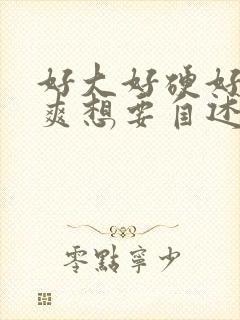 好大好硬好
爽想要自述
零點寧少